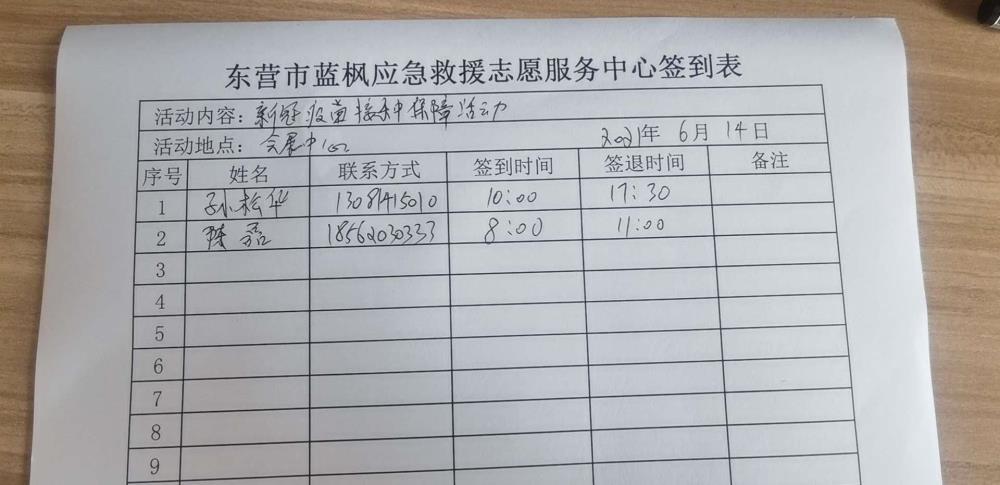 东营市蓝枫应急救援志愿服务中心签到表
活动内容：新冠疫苗接种保障活动
活动地点：会展中心 2021年 6月 14日
序号 姓名 联系方式 签到时间 签退时间 备注
1 孙松华 10:00 17:30
2 陈 18562030333 8:00 11:00
3
4
5
6
7
8
9